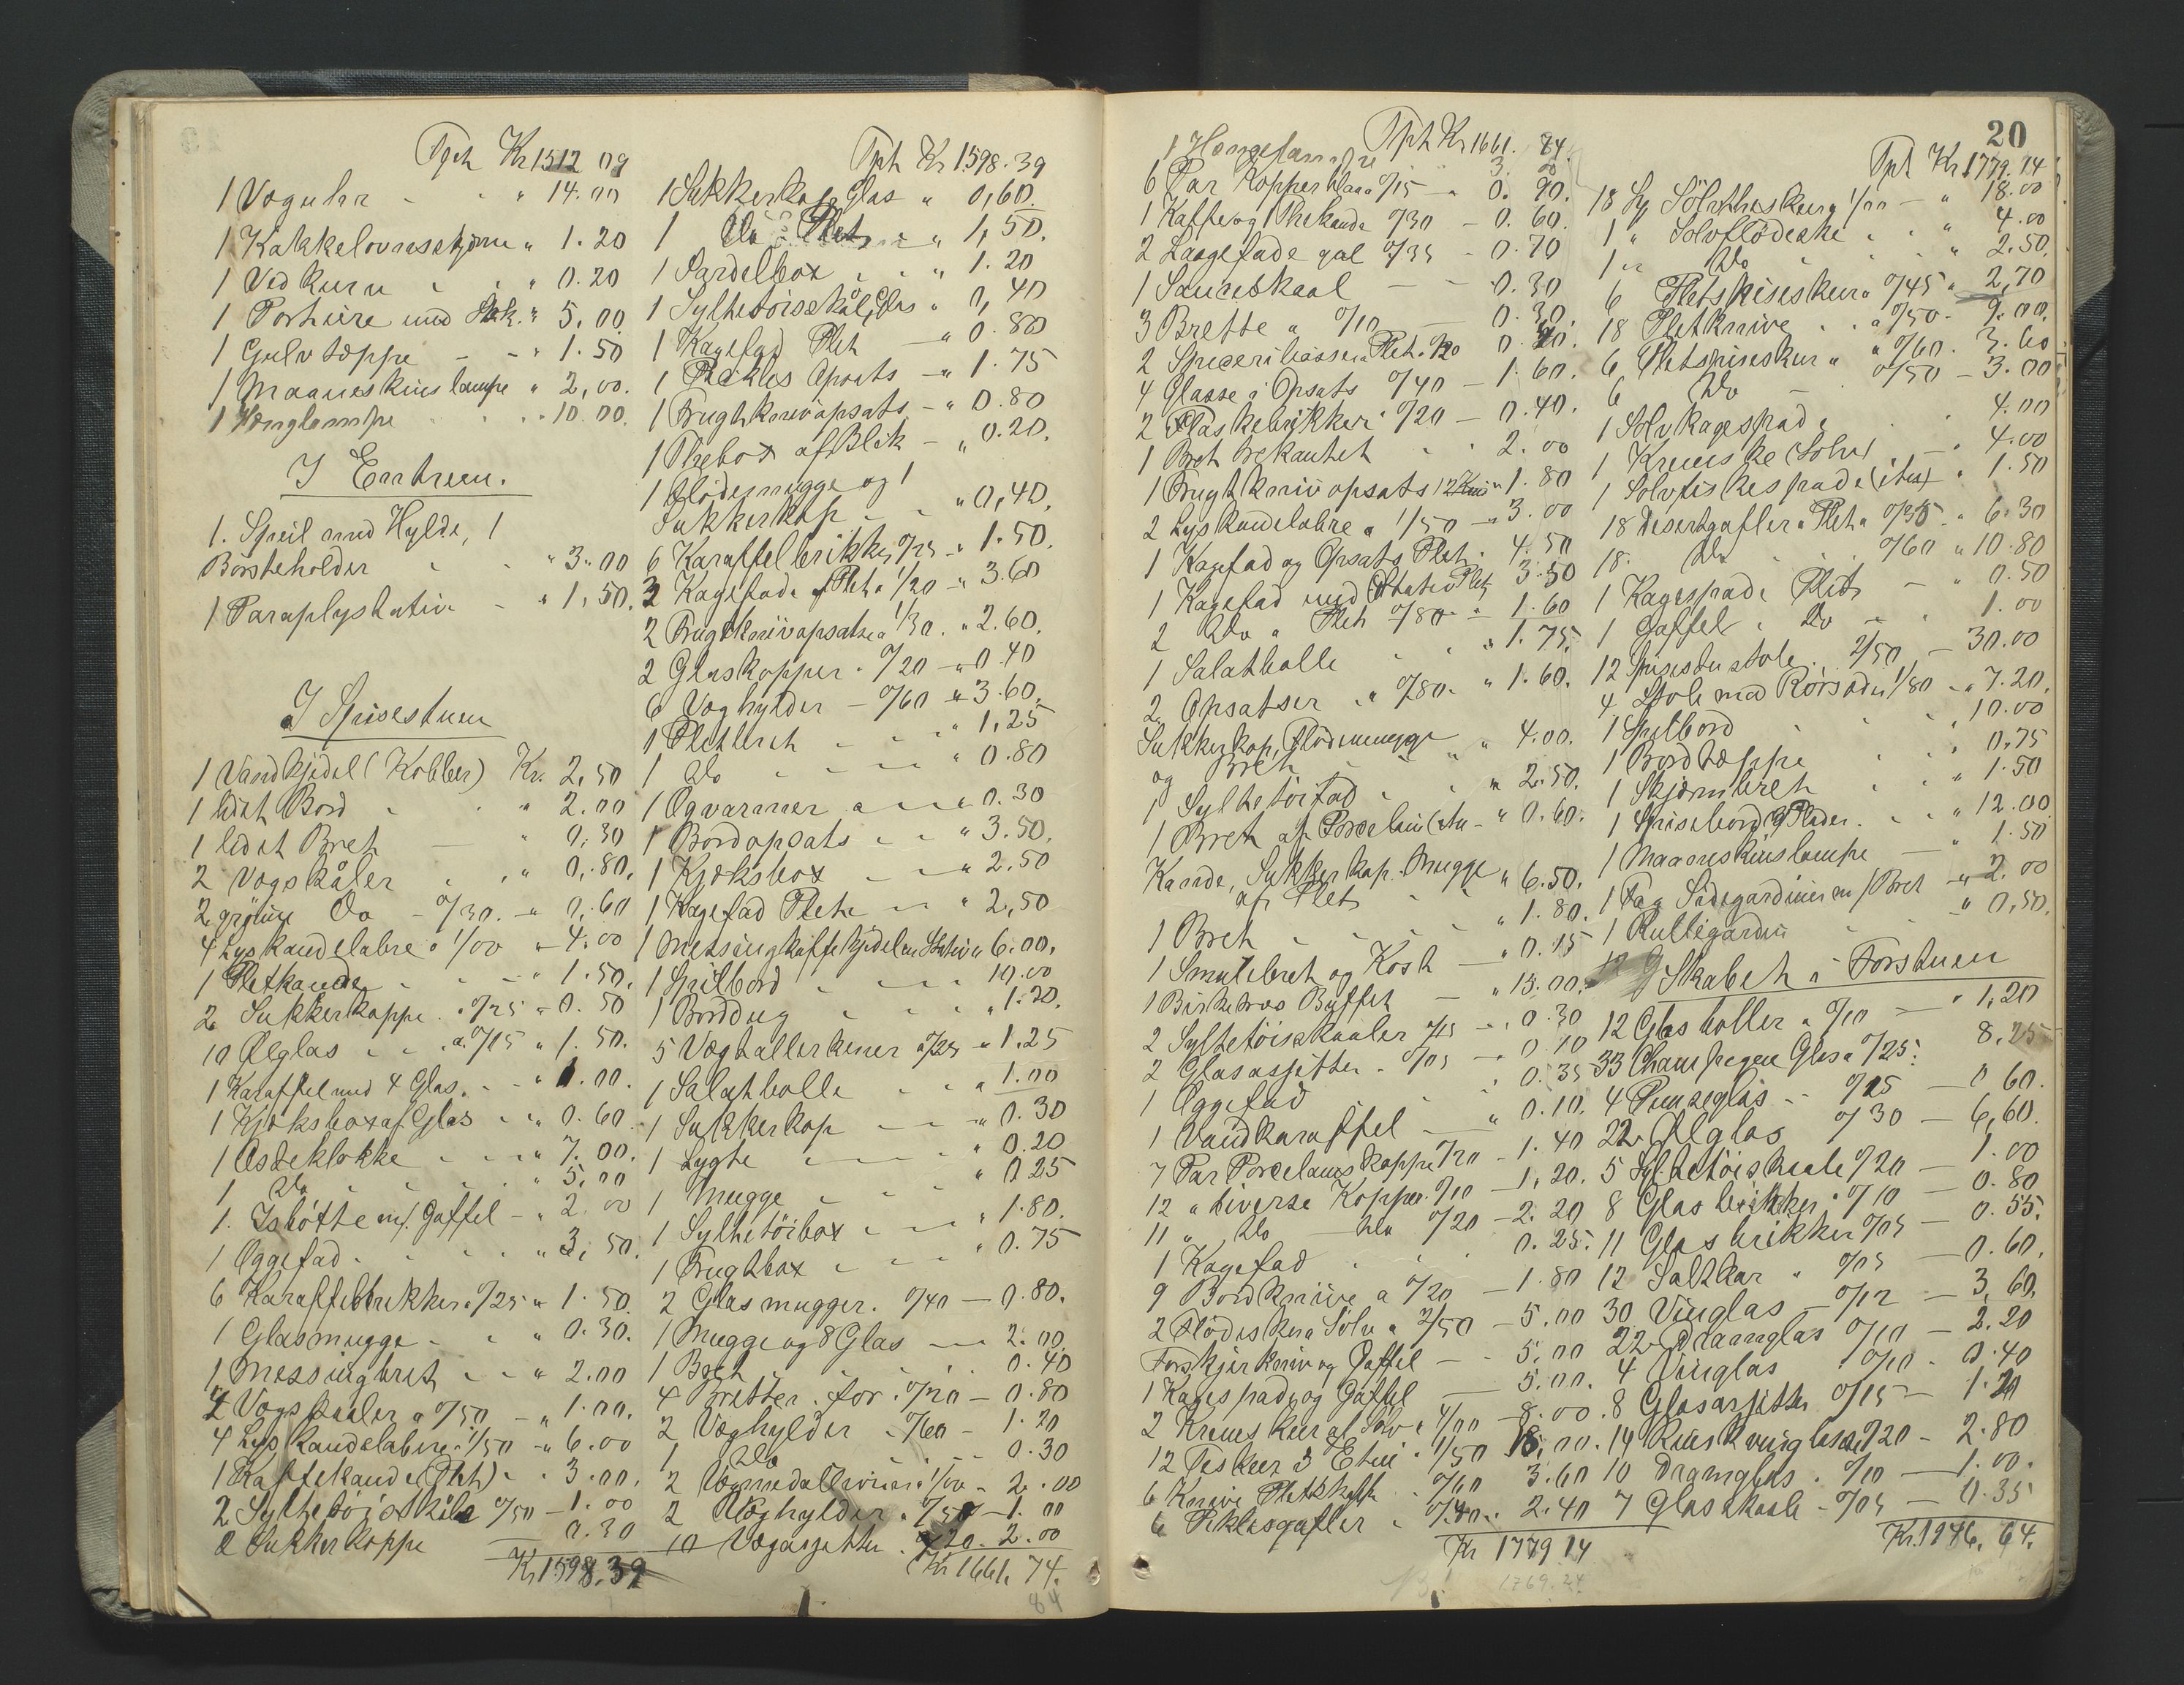 Tpt Kr 1512 09
1 Væguhr " 14.00
1 Kakkelovnsskjerm " 1.20
1 Vedkurv " 0.20
1 Portiere med Stk. " 5,00
1 Gulvtæppe - - " 1.50
1 Maaneskinslampe " 2,00.
1 Hænglampe 10.00.
I Entreen.
1. Speil med Hylde, 1
Börsteholder " 3.00
1 Paraplystativ - " 1,50.
I Spisestuen
1 Vandkjedel (Kobber) Kr. 2,50
1 lidet Bord " 2.00
1 lidet Bret — " 0,30
2 Vægskåler " 0,80,
2 grönne Do - 0/30. - " 0,60
4 Lyskandelabre a 1/00 " 4.00
1 Pletkande - - " 1.50,
2 Sukkerkoppe . a 0/25 - 0.50
10 Ölglas - - a. 0/15 " 1.50.
1 Karaffel med 4 Glas. - " 1.00.
1 Kjæksboxaf Glas - " 0.60
1 Osteklokke - - " 7.00.
1 Do " 5,00
1. Isbötte m/. Gaffel - " 2.00
1 Æggefad. - - " 3,50.
6 Karaffelbrikker. a 0/25 " 1.50.
1 Glasmugge - - " 0.30.
1 Messingbret - - " 2.00
2 Vægskaaler a 0/50 - " 1.00.
4 Lyskandelabre a 1/50 - " 6.00
1 Kaffekande (Plet) - . 3.00.
2 Syltetöiskåle 0/50 - 1.00
2 Sukkerkoppe 0.30
Kr 1598.39
Tpt Kr 1598.39
1 Sukkerkop Glas " 0,60.
1 Do Plet - " 1,50.
1 Sardelbox - - " 1.20
1 Syltetöiskål, Glas " 0,40
1 Kagefad Plet — " 0.80
1 Pickles Opsats - " 1.75
1 Frugtknivopsats - " 0.80
1 Thebox af Blik - " 0.20.
1 Flödemugge og 1
Sukkerkop - - " 0,40.
6 Karaffelbrikker 0/25 - " 1.50.
3 Kagefade af Plet a 1/20 - " 3.60
2 Frugtknivopsatse a 1/30. " 2.60.
2 Glaskopper. 0/20 - " 0.40
6 Væghylder - 0/60 - " 3.60.
1 Pletbret - - " 1,25
1 Do " 0.80
1 Ægvarmer - - " 0.30
1 Bordopsats - - " 3.50.
1 Kjæksbox — " 2.50
1 Kagefad Plet - " 2,50
1 Messingkaffekjedel m Stativ " 6.00.
1 Spilbord - - 10.00
1 Borddug - - " 1.20.
5 Vægtallerkener a 0/25 - " 1.25
1 Salatbolle - - " 1.00
1 Sukkerkop — " 0.30
1 Lygte - - " 0.20
1 Mugge - - " 0 25
1 Syltetöibox - - " 1.80.
1 Frugtbox - - " 0.75
2 Glasmugger. 0/40 — 0.80.
1 Mugge og 8 Glas — 2.00.
1 Bret - - 0.40
4 Bretter . for . 0/20 — 0.80
2 Væghylder - 0/60 - 1.20
1 Do - - 0.30
2 Vægmedalliouner a 1/00 - 2.00
2 Væghylder a 0/50 - 1.00
10 Vægasjetter . 0/20. 2.00
Kr 1661. 74.
84
20
Tpt Kr 1661. 84.
1 Hængelampe 3.00
6 Par Kopper blaa a 0/15 - " 0.90.
1 Kaffe og 1 Thekande 0/30 - 0.60.
2 Laagefade gal 0/35 - 0.70
1 Sauceskaal — - 0.30
3 Brette a 0/10 — 0.30.
2 Speceribösser a Plet a 0/20 0.40.
4 Glasse i Opsats 0/40 - 1.60.
2 Flaskebrikker a 0/20 - 0.40.
1 Bret trekantet . . 2.00
1 Frugtknivopsats 12 Kniv " 1.80
2 Lyskandelabre a 1/50 - " 3.00
1 Kagefad og Opsats Plet. 4.50
1 Kagefad med Stativ Plet 3.50
2 Do " Plet 0/80 - " 1.60
1 Salatbolle " 1.75.
2 Opsatser . " 0/80. " 1.60.
Sukkerkop, Flödemugge
og Bret " 4.00.
1 Syltetöifad - " 2.50.
1 Bret af Porcelain (itu - " 0.60.
Kande, Sukkerkop. Mugge
af Plet " 6.50.
1 Bret " 1.80.
1 Smulebret og Kost — 0.15
1 Birketræs Buffet — " 15.00.
2 Syltetöiskaaler 0/15 - . 0.30
2 Glasasjetter - 0/05 - . 0.10
1 Æggefad . 0.35
1 Vandkaraffel — " 0.10.
7 Par Porcelains Kopper 0/20 - 1.40
12 " diverse Kopper. 0/10 - 1,20.
11 " Do — blaa 0/20 - 2.20
1 Kagefad 0.25.
9 Bordknive a 0/20 - 1.80
2 Flödeskeer a Sölv a 2/50 - 5.00
Forskjærkniv og Gaffel — . 5.00
1 Kagespade og Gaffel — 5.00.
2 Kremskeer af Sölv a 4/00 - 8.00.
12 Teskeer i Etui . 1/50 18.00.
6 Knive Pletskaft . 0/60 3.60
6 Piklesgafler - 0/40. . 2.40
Kr 1779 14
1769.24
Tpt Kr 1779.14
18 Sp Sölvtheskeer a 1/00 — " 18.00
1 " Sölvflödeske - . " 4.00
1 " Do " 2.50.
6 Pletspiseskeer a 0/45 " 2,70
18 Pletknive . . a 0/50 - 9.00.
6 Pletspiseskeer a " 0/60 . 3.60
6 Do - 0/50 - 3.00
1 Sölvkagespade . 4.00
1 Kremske (Sölv) . - . 4.00
1 Sölvfiskespade (itu) . 1.50
18 Desertgafler a Plet a 0/35 - " 6.30
18. Do 0/60 " 10.80
1 Kagespade Plet - " 0.50
1 Gaffel . Do - . 1.00
12 Spisestustole . 2/50 - 30.00
4 Stole med Rörsæder 1/80 - " 7.20.
1 Spilbord . . . 10.00
1 Bordtæppe . . . 0,75
1 Skjænkbret . . " 1.50
1 Spisebord 9 Plader. . . " 12.00
1 Maaneskinslampe — " 1.50
1 Fag Sidegardiner m/ Bret - " 2.00
1 Rullegardin " 0,50.
I Skabet i Forstuen
12 Glasboller a 0/10 — " 1,20
33 Champagne Glas a 0/25. 8,25
4 Punseglas - - 0/15 — 0 60.
22 Ölglas 0/30 — 6,60.
5 Syltetöiskaale 0/20 - 1.00
8 Glasbrikker a 0/10 — 0.80
11 Glasbrikker 0/05 — 0.55.
12 Saltkar " 0/05 — 0.60.
30 Vinglas — 0/12 — 3,60.
22 Dramglas 0/10 - 2.20
4 Vinglas 0/10 . 0.40
8 Glasasjetter 0/15 - 1.20
14 Rinskvinglas a 0/20 - 2.80
10 Dramglas . 0/10 — 1.00.
7 Glasskaale - 0/05 — 0.35
Kr. 1976. 64.